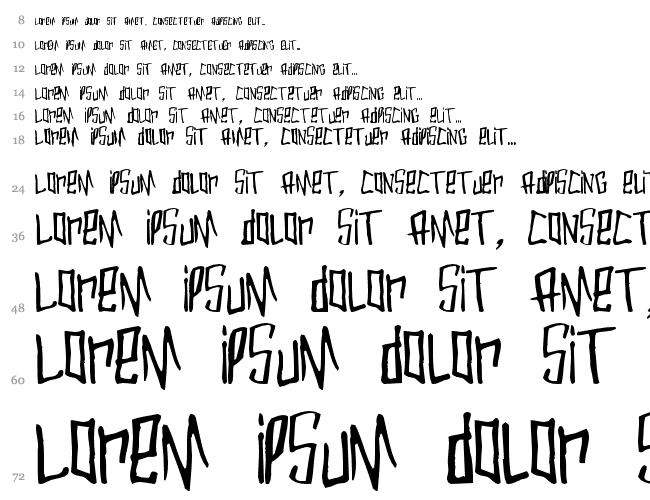 8 Lorem ipsum dolor sit amet, consectetuer adipiscing elit...
10 Lorem ipsum dolor sit amet, consectetuer adipiscing elit...
12 Lorem ipsum dolor sit amet, consectetuer adipiscing elit...
14 Lorem ipsum dolor sit amet, consectetuer adipiscing elit...
16 Lorem ipsum dolor sit amet, consectetuer adipiscing elit...
18 Lorem ipsum dolor sit amet, consectetuer adipiscing elit...
24 Lorem ipsum dolor sit amet, consectetuer adipiscing elit
36 Lorem ipsum dolor sit amet, consect
48 Lorem ipsum dolor sit amet,
60 Lorem ipsum dolor sit
72 Lorem ipsum dolor s